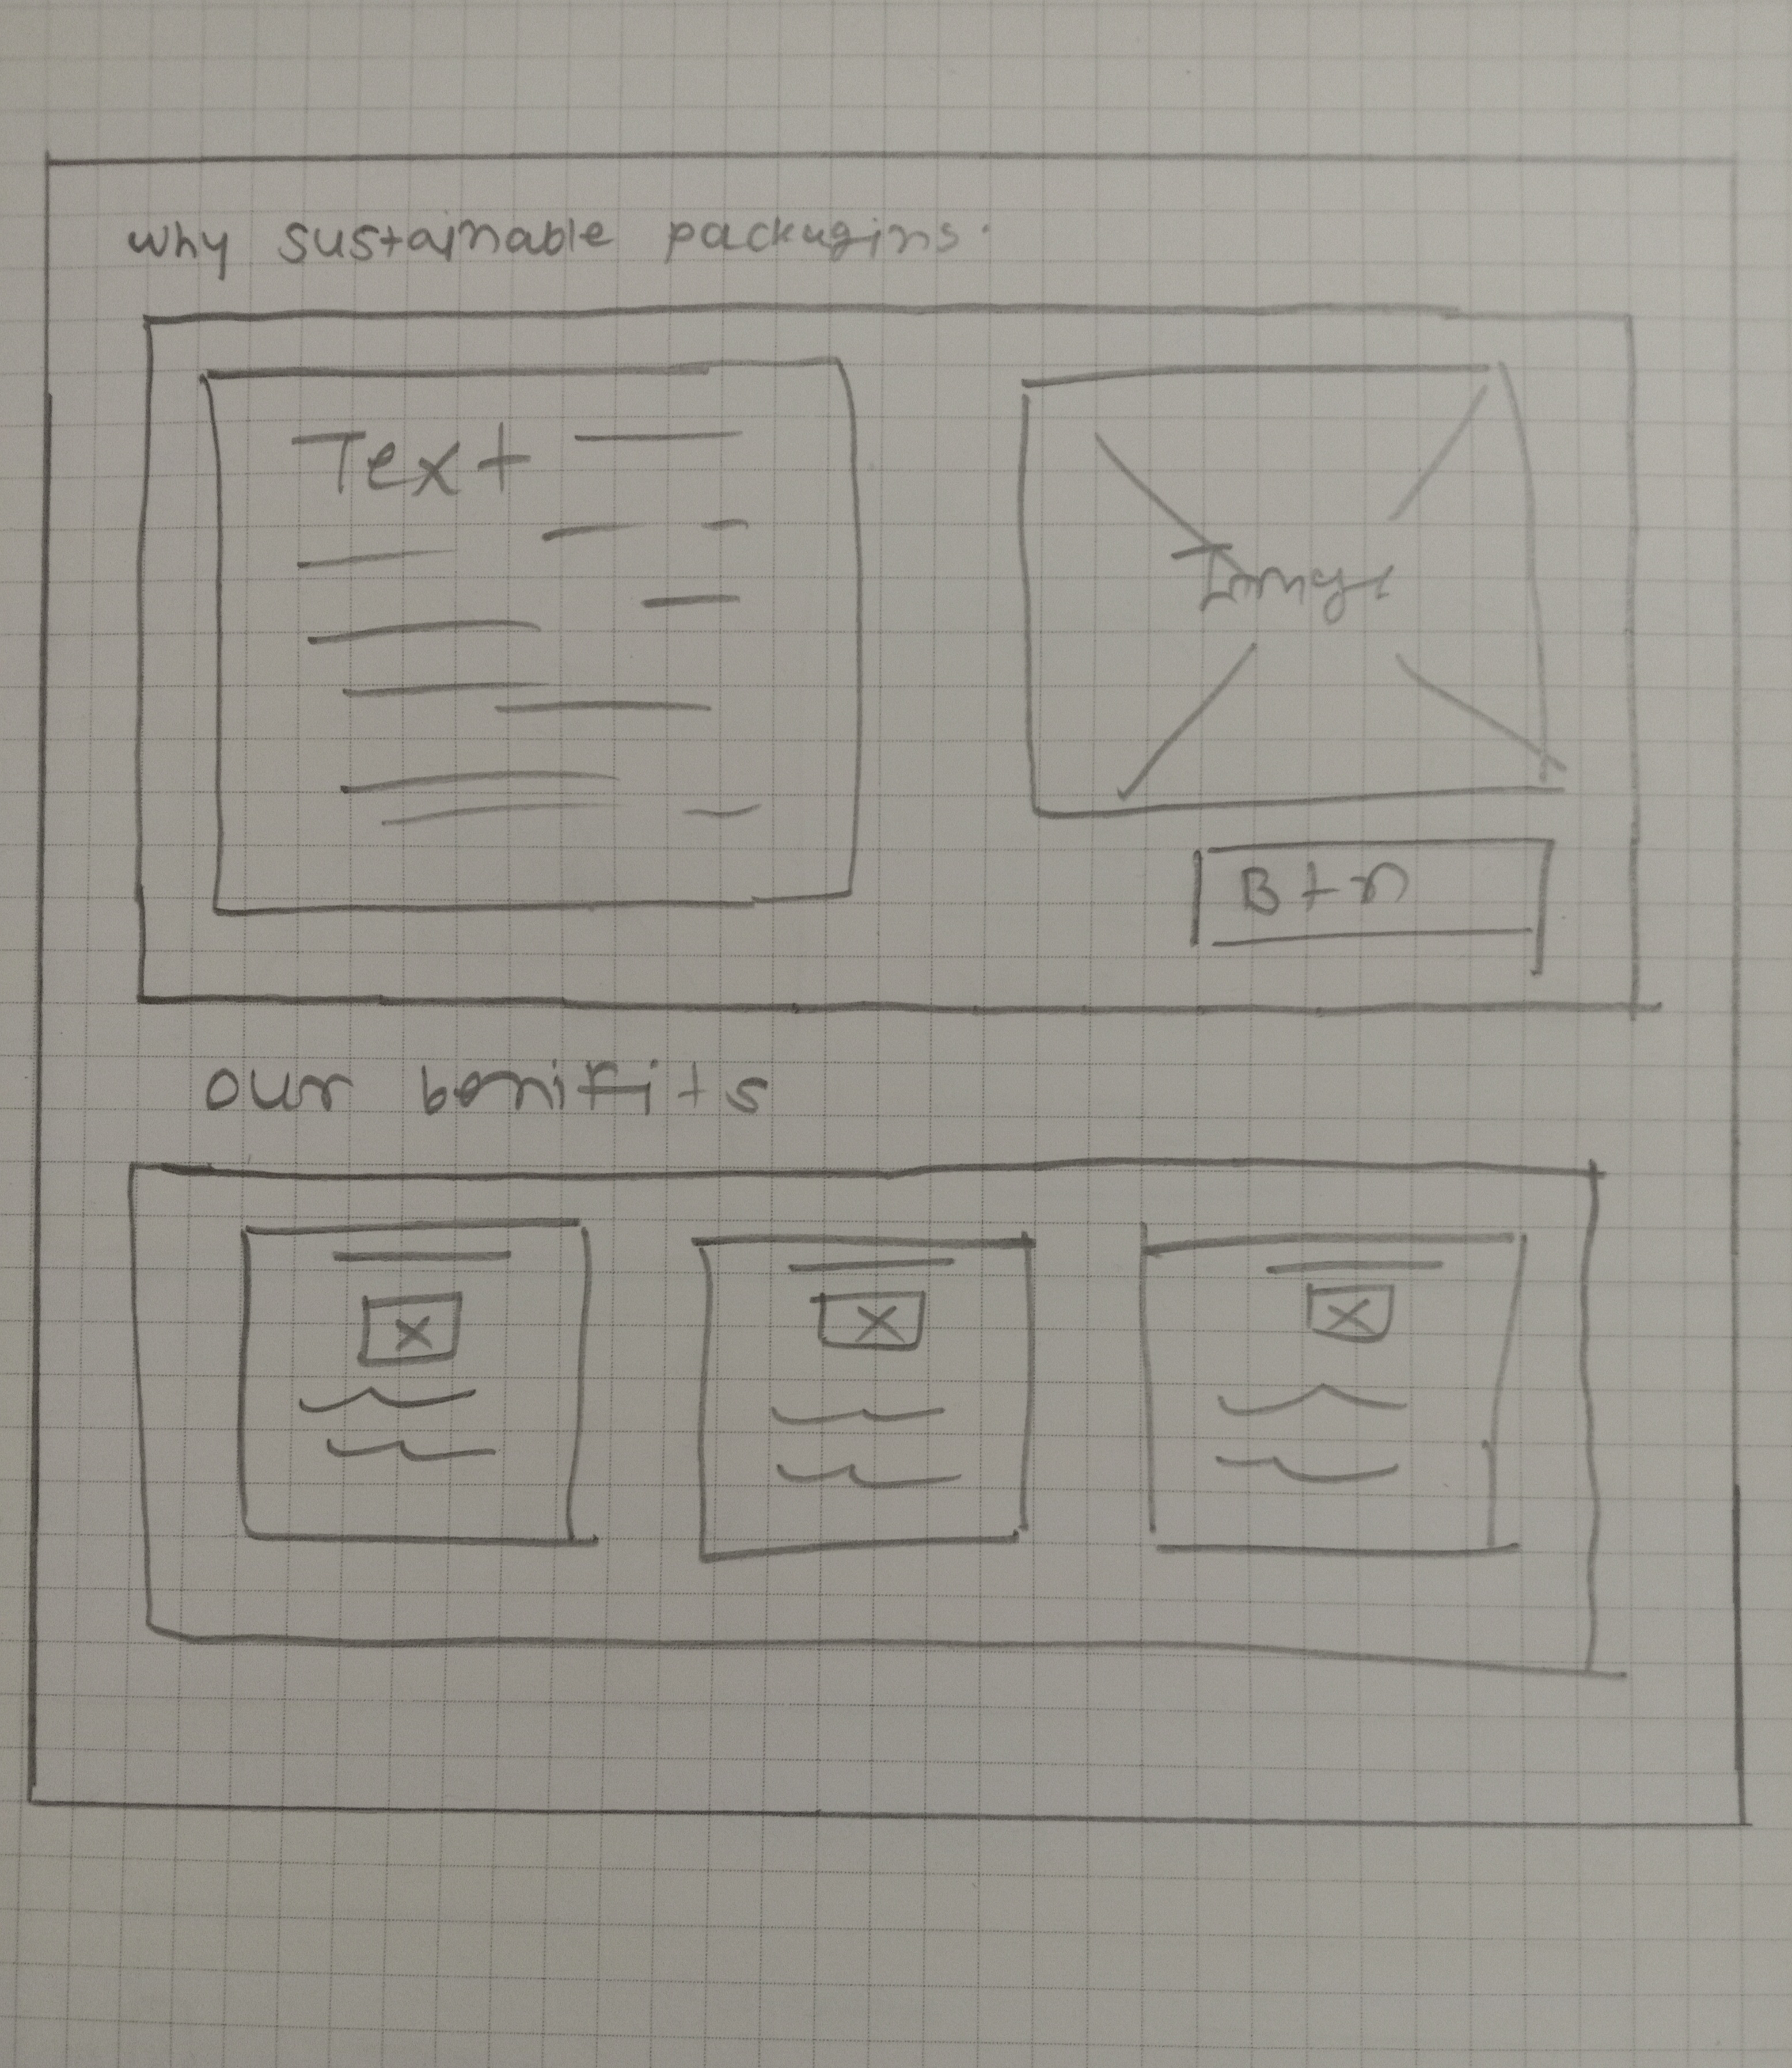 why sustainable packagins.
Text
Image
Btn
our bonifits